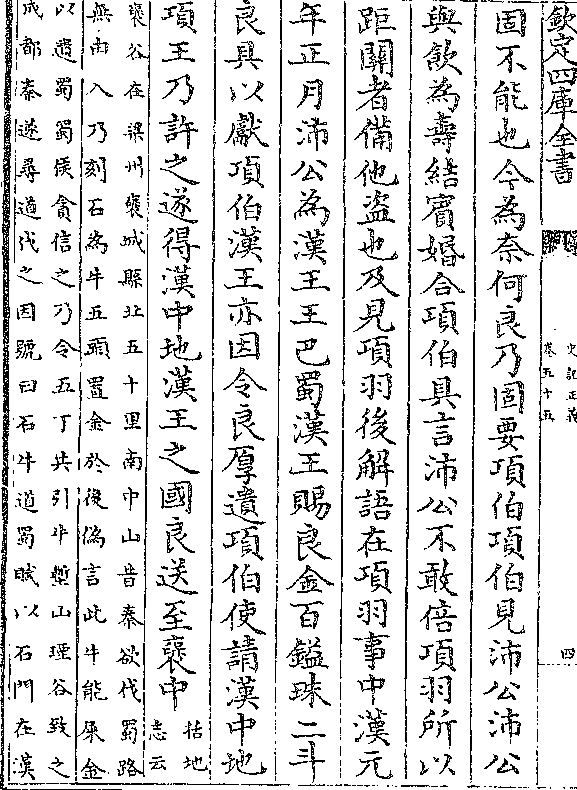 欽定四庫全書
史記正義
卷五十五
四
固不能也今為奈何良乃固要項伯項伯見沛公沛公
與飲為壽結賓婚合項伯具言沛公不敢倍項羽所以
距關者備他盜也及見項羽後解語在項羽事中漢元
年正月沛公為漢王王巴蜀漢王賜良金百鎰珠二斗
良具以獻項伯漢王亦因令良厚遺項伯使請漢中地
項王乃許之遂得漢中地漢王之國良送至褒中括地
志云
褒谷在梁州褒城縣北五十里南中山昔秦欲伐蜀路
無由入乃刻石為牛五頭置金於後偽言此牛能屎金
以遺蜀蜀侯貪信之乃令五丁共引牛塹山堙谷致之
成都秦遂尋道伐之因號曰石牛道蜀賦以石門在漢